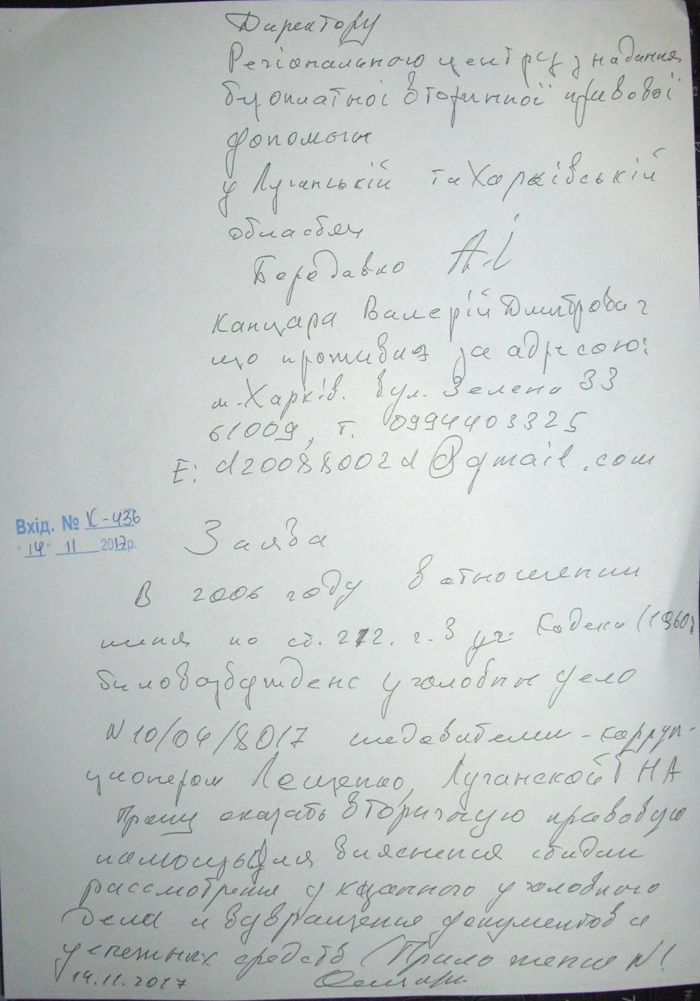 Директору
Регіонального центру з надання
безоплатної вторинної правової
допомоги
у Луганській та Харківській
областях
Бередавко А.І
Канцара Валерій Дмитрович
що проживає за адресою:
м. Харків. вул. Зелена 33
61009, т. 0994403325
E: d20088002d@gmail.com
Вхід. № К-436
"14" 11 2017р.
Заява
В 2006 году в отношении
меня по ст. 212. ч. 3 уг. Кодекса (1960)
было возбуждено уголовное дело
N 10/04/8017 следователем - корруп-
ционером Лещенко, Луганской ГНА
Прошу оказать вторичную правовую
помощь для выяснения стадии
рассмотрения указанного уголовного
дела и возвращения документов и
денежных средств (Приложение N1
14.11.2017